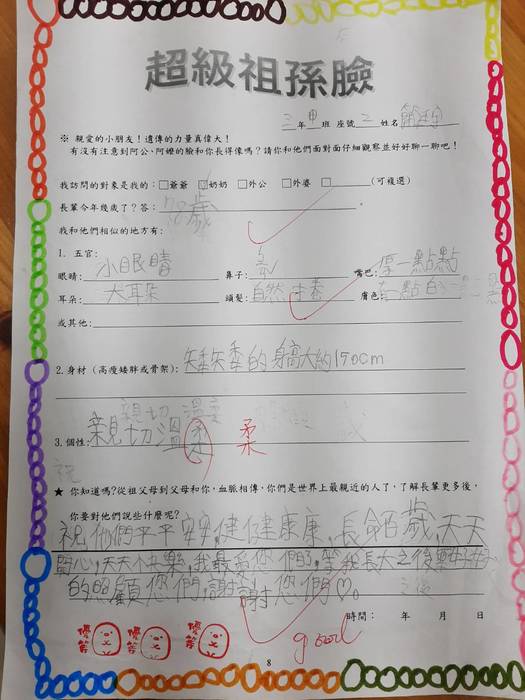 超級祖孫臉
三年甲班 座號二 姓名
※ 親愛的小朋友！遺傳的力量真偉大！
有沒有注意到阿公、阿嬤的臉和你長得像嗎？請你和他們面對面仔細觀察並好好聊一聊吧！
我訪問的對象是我的：□爺爺 ☑奶奶 □外公 □外婆 □ (可複選)
長輩今年幾歲了？答： 歲
我和他們相似的地方有：
1. 五官：
眼睛：小眼睛 鼻子： 嘴巴：厚一點點
耳朵：大耳朵 頭髮：自然 膚色：有一點白
或其他：
2. 身材（高瘦矮胖或骨架）：矮矮的身高大約150cm
3. 個性：親切溫柔 柔
★ 你知道嗎？從祖父母到父母和你，血脈相傳，你們是世界上最親近的人了，了解長輩更多後，
你要對他們說些什麼呢？
祝他們平平安安，健健康康，長命百歲，天天
開心，天天快樂，我最愛您們的，等我長大之後
的照顧您們，謝謝您們♡。
時間： 年 月 日
優等 優等 優等 good
8